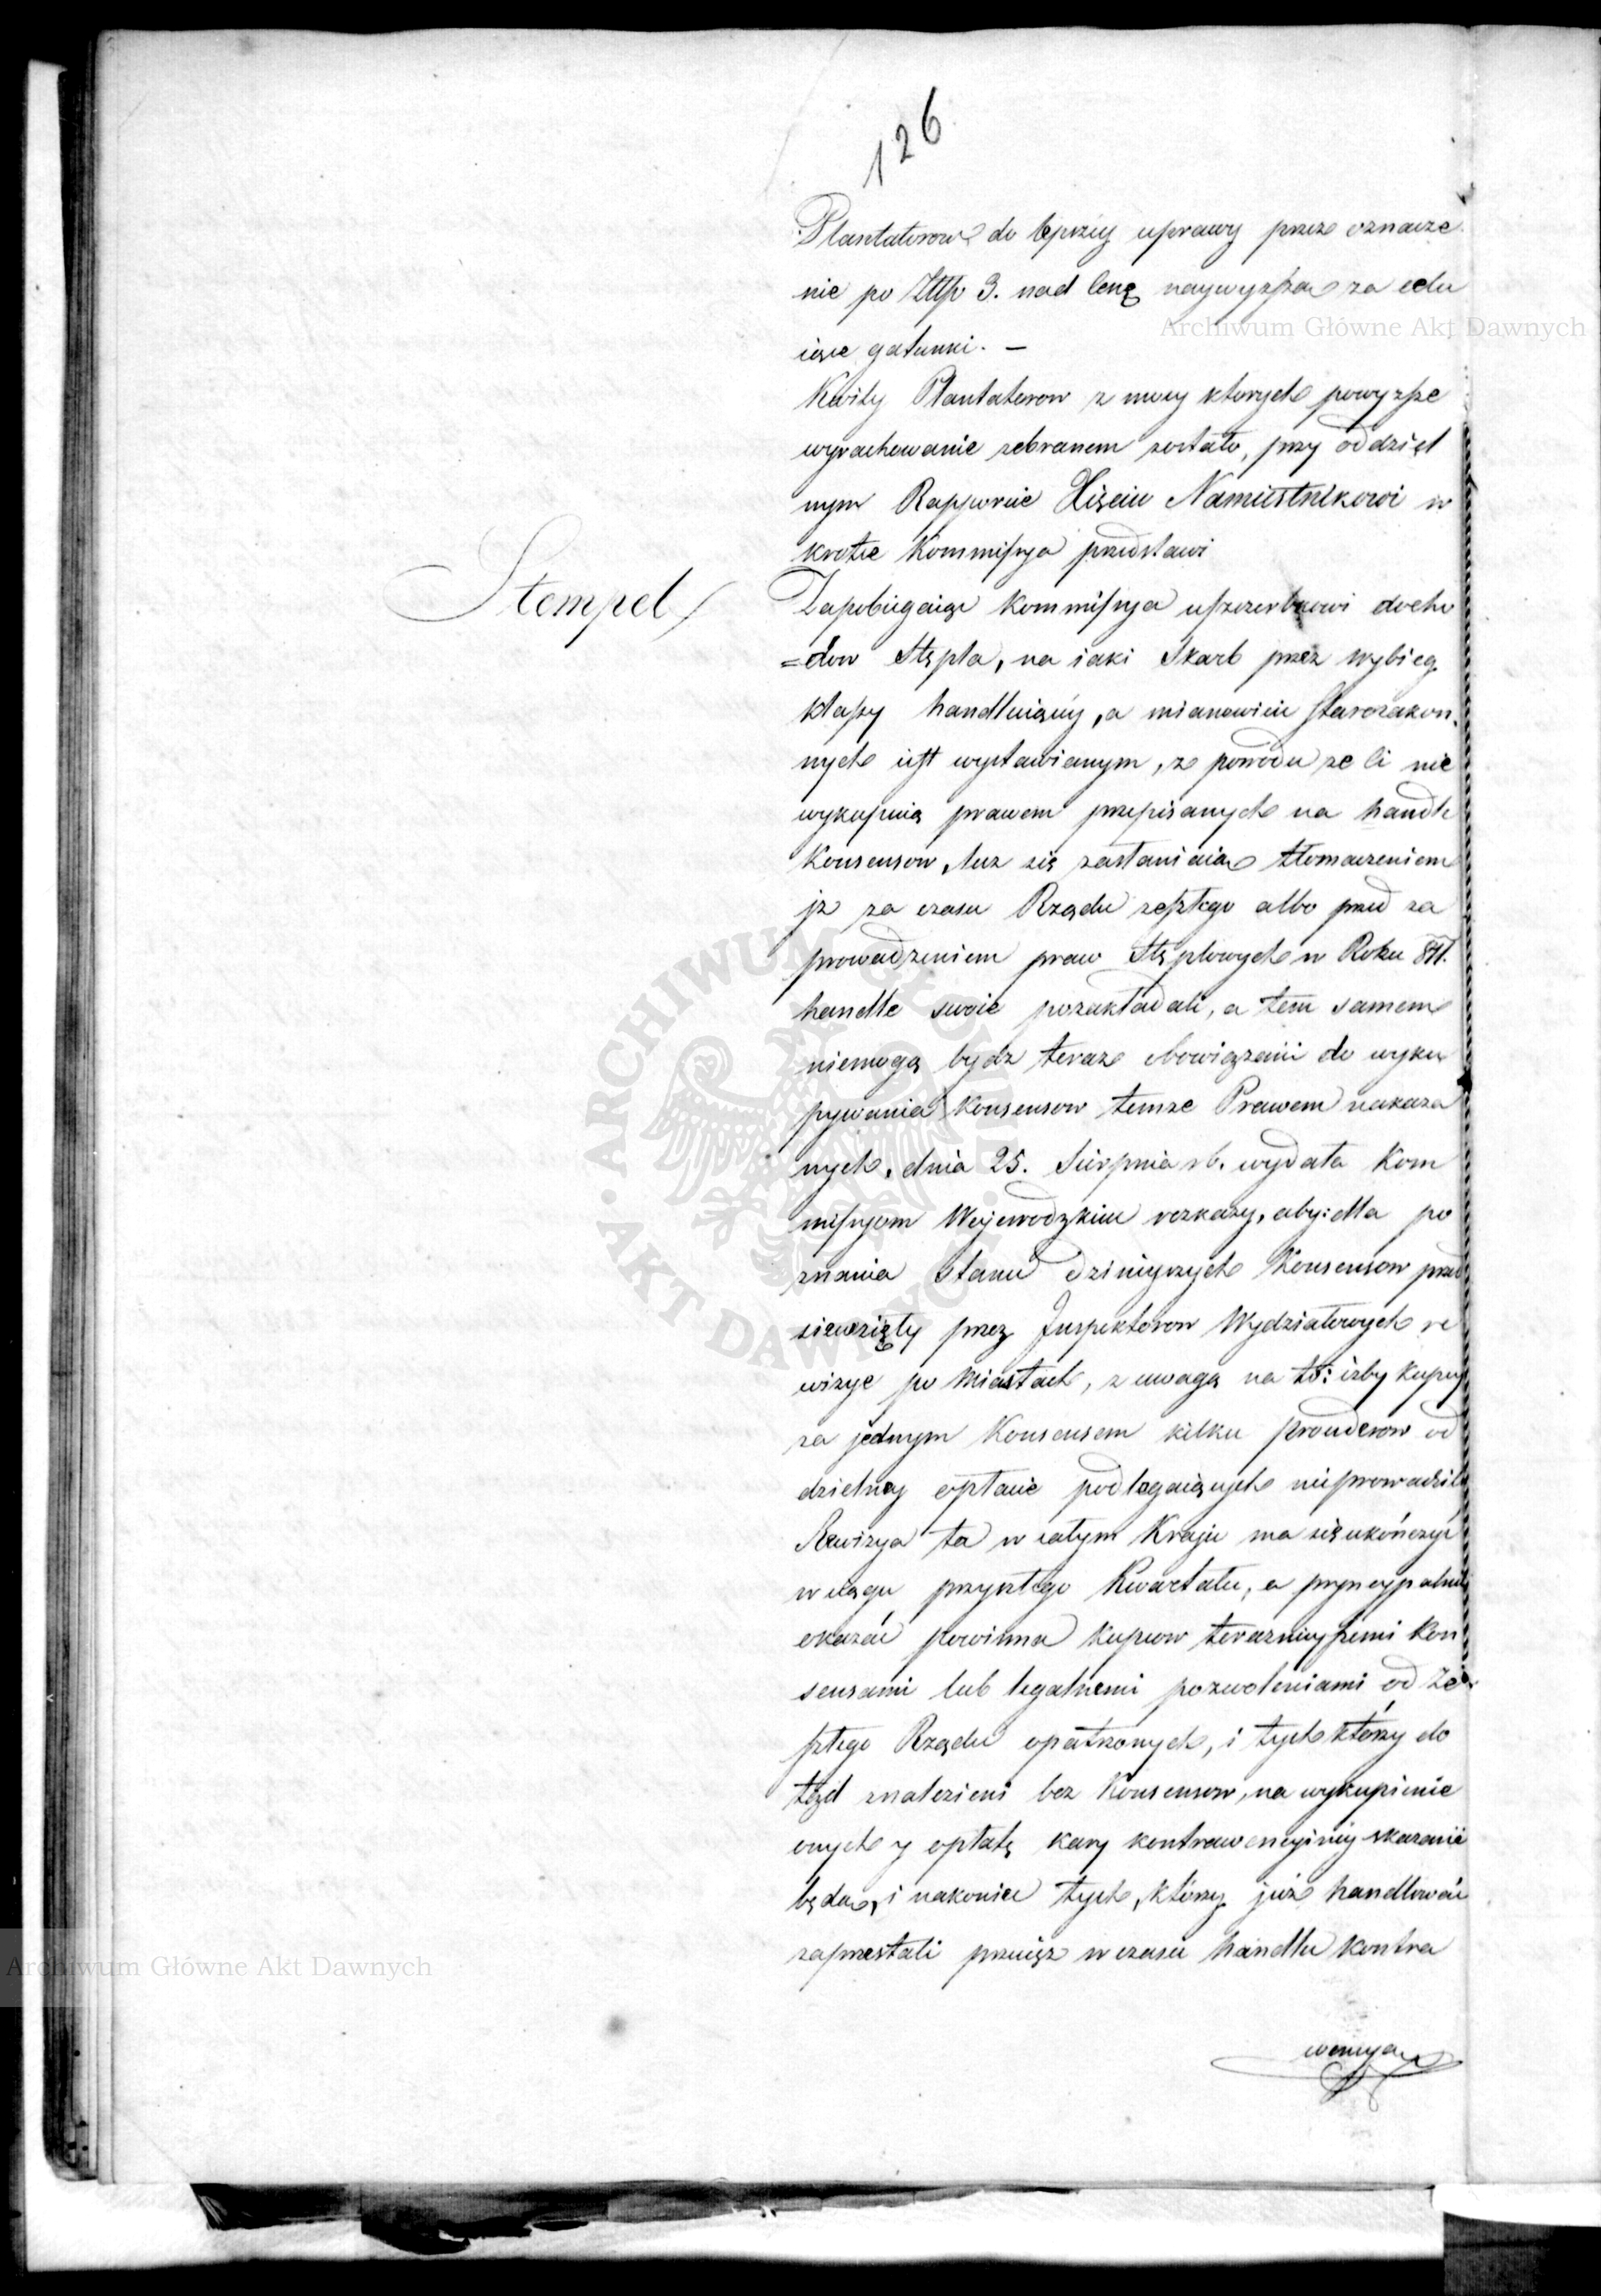 126
Plantatorow do lepszey uprawy przez oznacze
nie po Złtp 3. nad Cenę naywyższą za celu
iące gatunki. —
Kwity Plantatorow z mocy ktorych powyższe
wyrachowanie zebranem zostało, przy oddziel
nym Rapporcie Xięciu Namiestnikowi w
krotce Kommissya przedstawi
Stempel
Zapobiegaiąc Kommissya uszczerbkowi docho
=dow Stępla, na iaki Skarb przez wybieg
klassy handluiącey, a mianowicie Starozakon
nych iest wystawianym, z powodu ze Ci nie
wykupuią prawem przepisanych na handle
Konsensow, lecz się zasłaniaią tłomaczeniem
iz za czasu Rządu zeszłego albo przed za
prowadzeniem praw Stęplowych w Roku 811.
handle swoie pozakładali, a tem samem
niemogą bydz teraz obowiązani do wyku
pywania Konsensow temze Prawem nakaza
nych, dnia 25. Sierpnia rb. wydała Kom
missyom Wojewodzkim rozkazy, aby: dla po
znania Stanu dzinieyszych Konsensow przed
siewzięły przez Inspektorow Wydziałowych re
wizye po Miastach, z uwagą na to: izby kupcy
za jednym Konsensem kilku procederow od
dzielney opłacie podlegaiących nieprowadzili
Rewizya ta w całym Kraju ma się ukończyć
w ciągu przyszłego Kwartału, a pryncypalnie
okazać powinna Kupcow teraznieyszemi Kon
sensami lub legalnemi pozwoleniami od Ze
szłego Rządu opatrzonych, i tych którzy do
tąd znalezieni bez Konsensow, na wykupienie
onych y opłatę kary kontrawencyiney skazani
będą, i nakoniec tych, którzy już handlować
zaprzestali przecięz w czasie handlu kontra
wencya
Archiwum Główne Akt Dawnych
Archiwum Główne Akt Dawnych
ARCHIWUM GŁÓWNE · AKT DAWNYCH ·